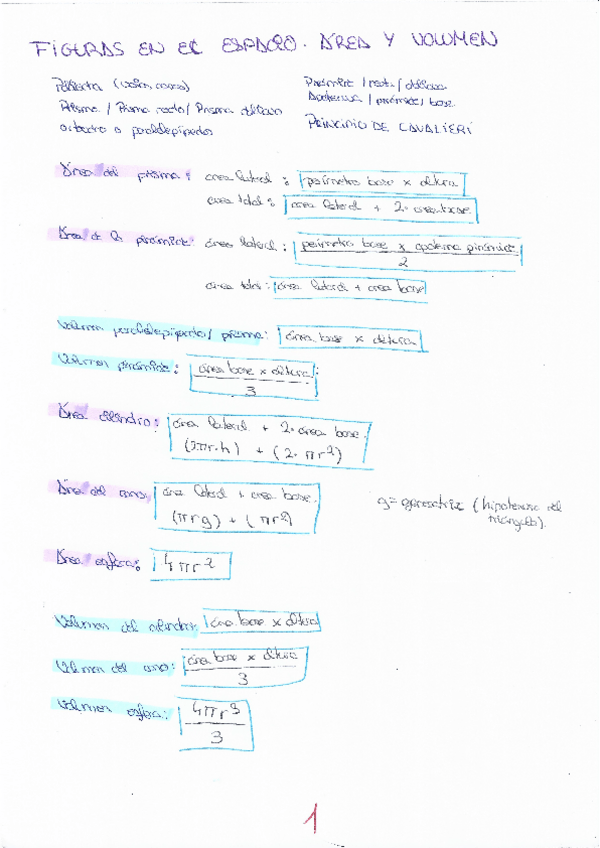 FIGURAS EN EL ESPACIO. ÁREA Y VOLUMEN
Poliedro
Prisma / Prisma recto / Prisma oblicuo
ortoedro o paralelepípedo
Pirámide / recta / oblicua
Apotema / pirámide / base
PRINCIPIO DE CAVALIERI
Área del prisma: área lateral: perímetro base x altura
área total: área lateral + 2· área base
Área de la pirámide: área lateral: perímetro base x apotema pirámide
2
área total: área lateral + área base
Volumen paralelepípedo / prisma: área base x altura
Volumen pirámide: área base x altura
3
Área cilindro: área lateral + 2· área base
(2πr·h) + (2·πr²)
Área del cono: área lateral + área base
(πrg) + (πr²)
g = generatriz (hipotenusa del
triángulo).
Área esfera: 4πr²
Volumen del cilindro: área base x altura
Volumen del cono: área base x altura
3
Volumen esfera: 4πr³
3
1